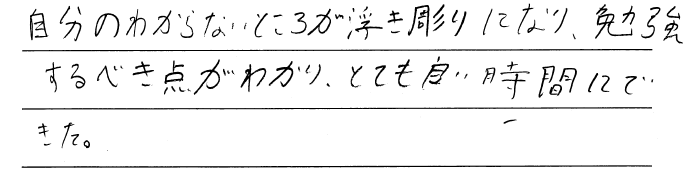 自分のわからないところが浮き彫りになり、勉強
するべき点がわかり、とても良い時間にで
きた。